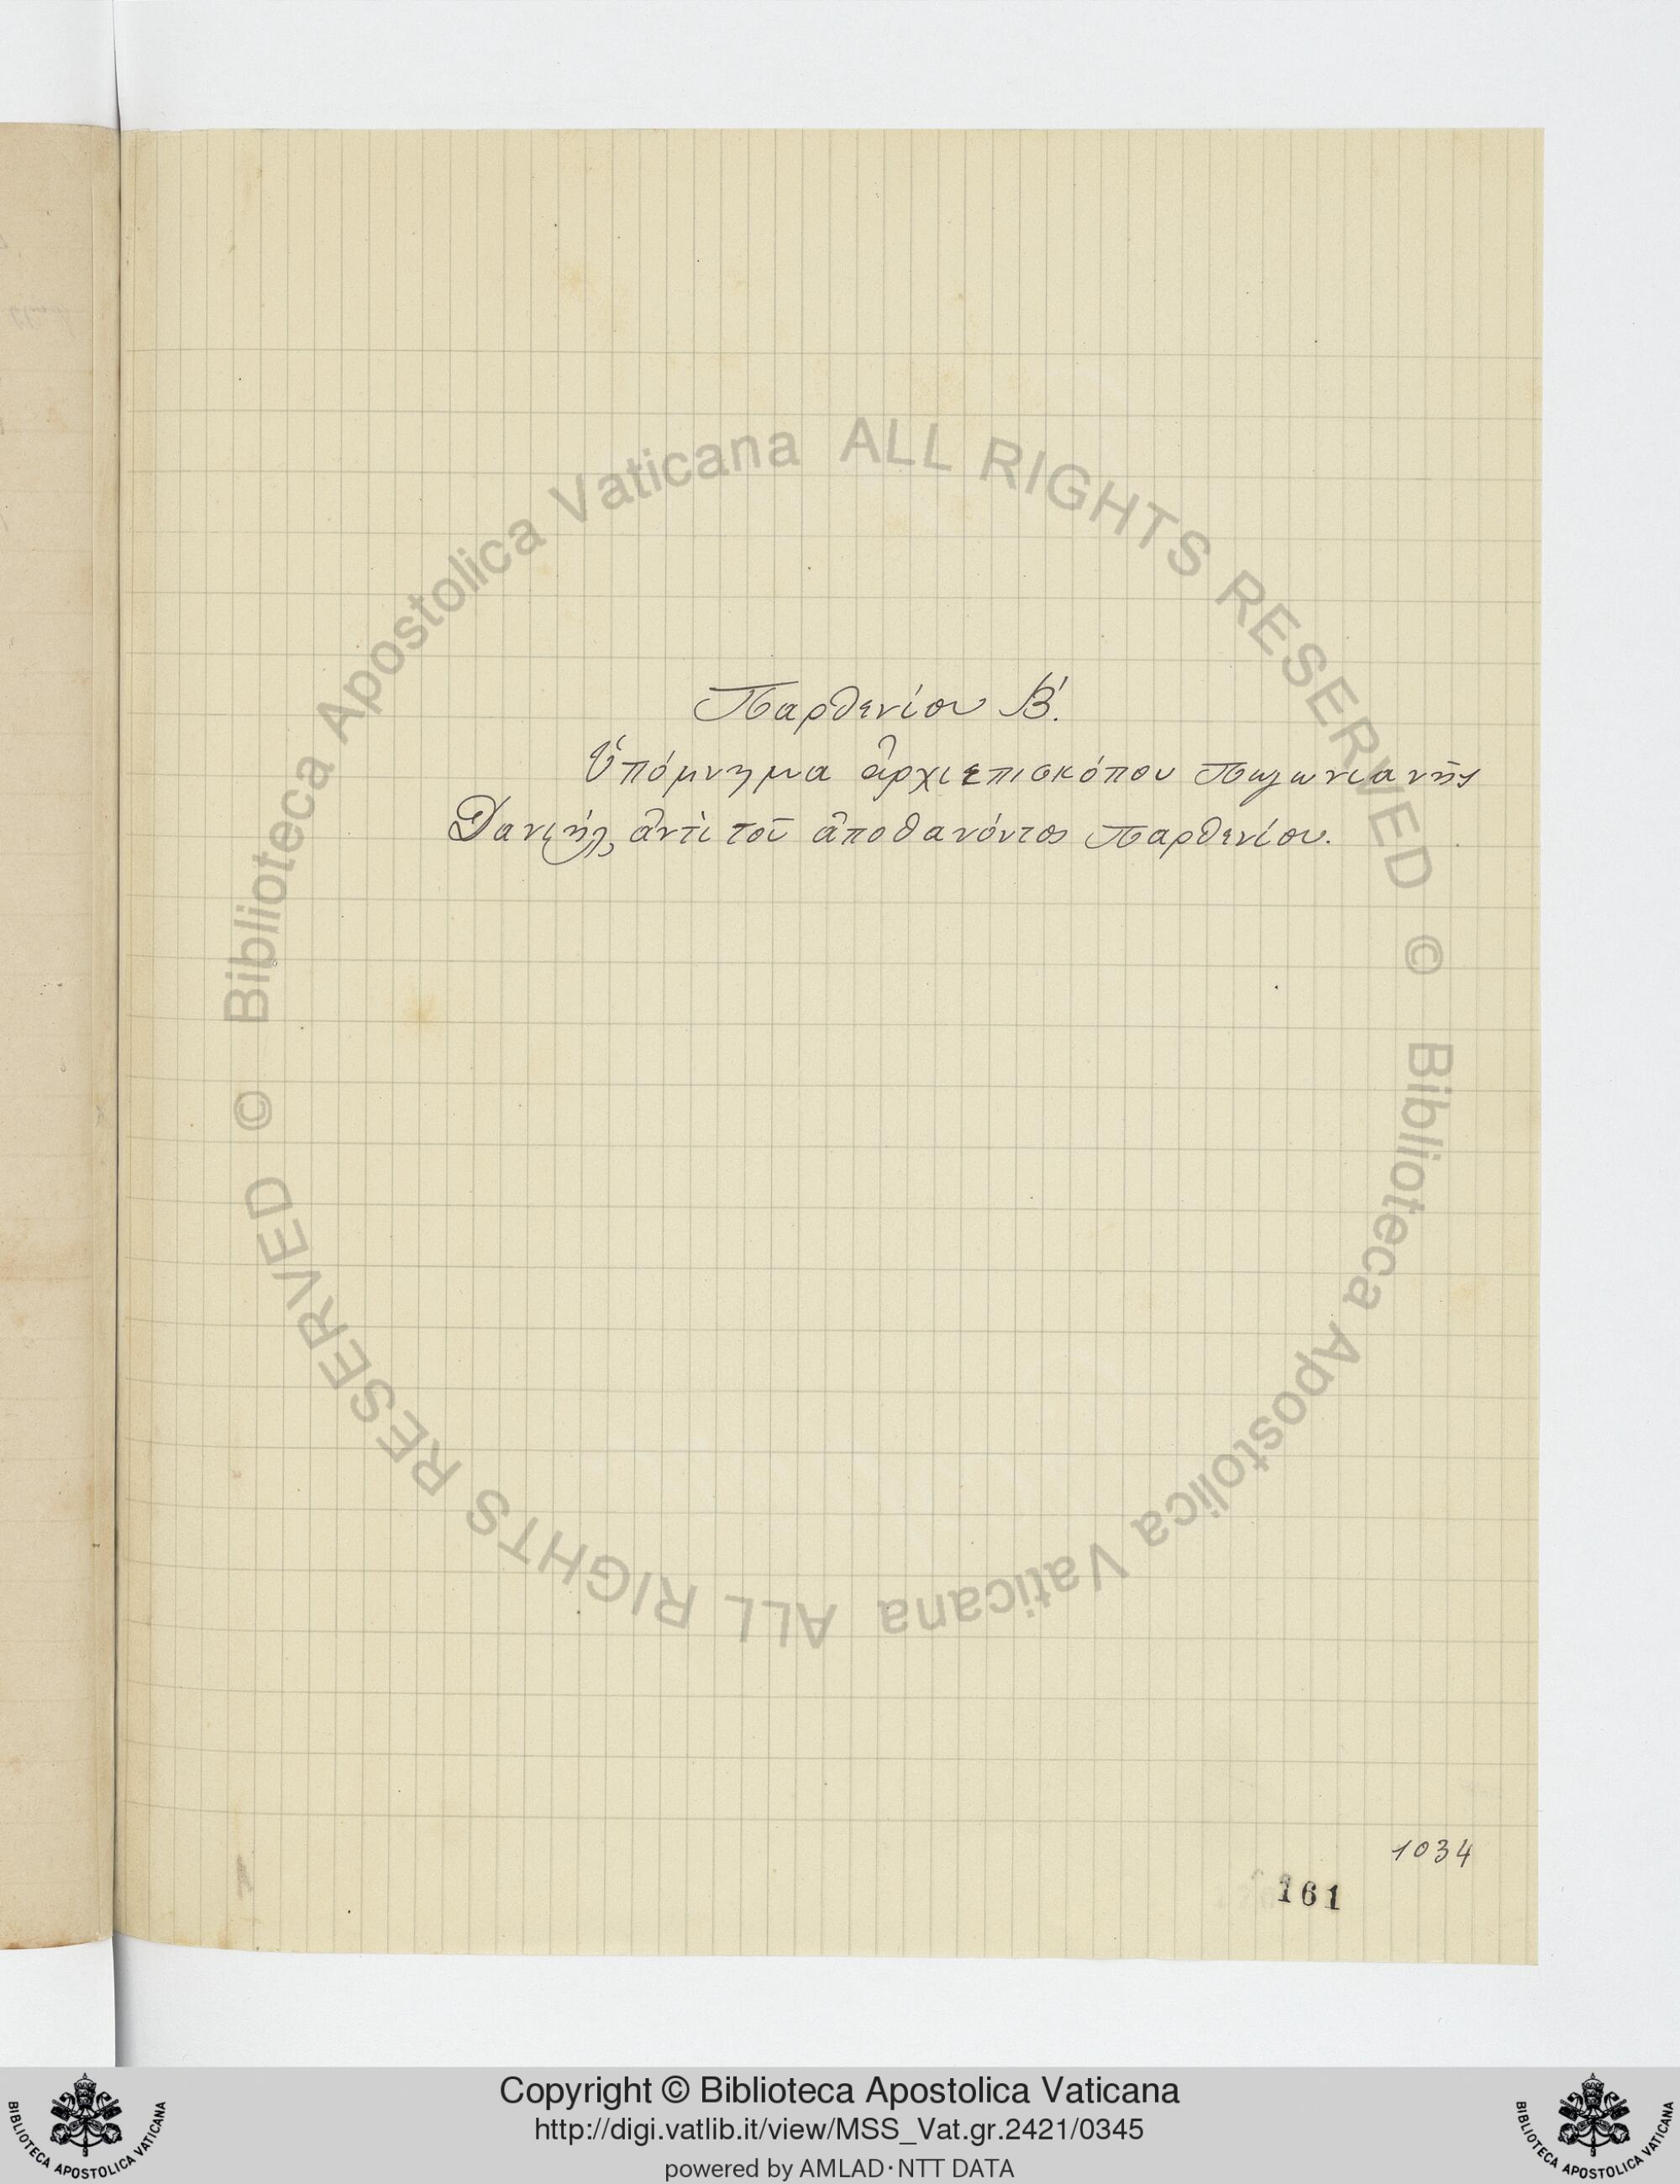 Παρθενίου Β΄.
Ὑπόμνημα ἀρχιεπισκόπου Πωγωνιανῆς
Δανιήλ, ἀντὶ τοῦ ἀποθανόντος Παρθενίου.
1034
161
© Biblioteca Apostolica Vaticana ALL RIGHTS RESERVED
© Biblioteca Apostolica Vaticana ALL RIGHTS RESERVED
Copyright © Biblioteca Apostolica Vaticana
http://digi.vatlib.it/view/MSS_Vat.gr.2421/0345
powered by AMLAD·NTT DATA
BIBLIOTECA APOSTOLICA VATICANA
BIBLIOTECA APOSTOLICA VATICANA